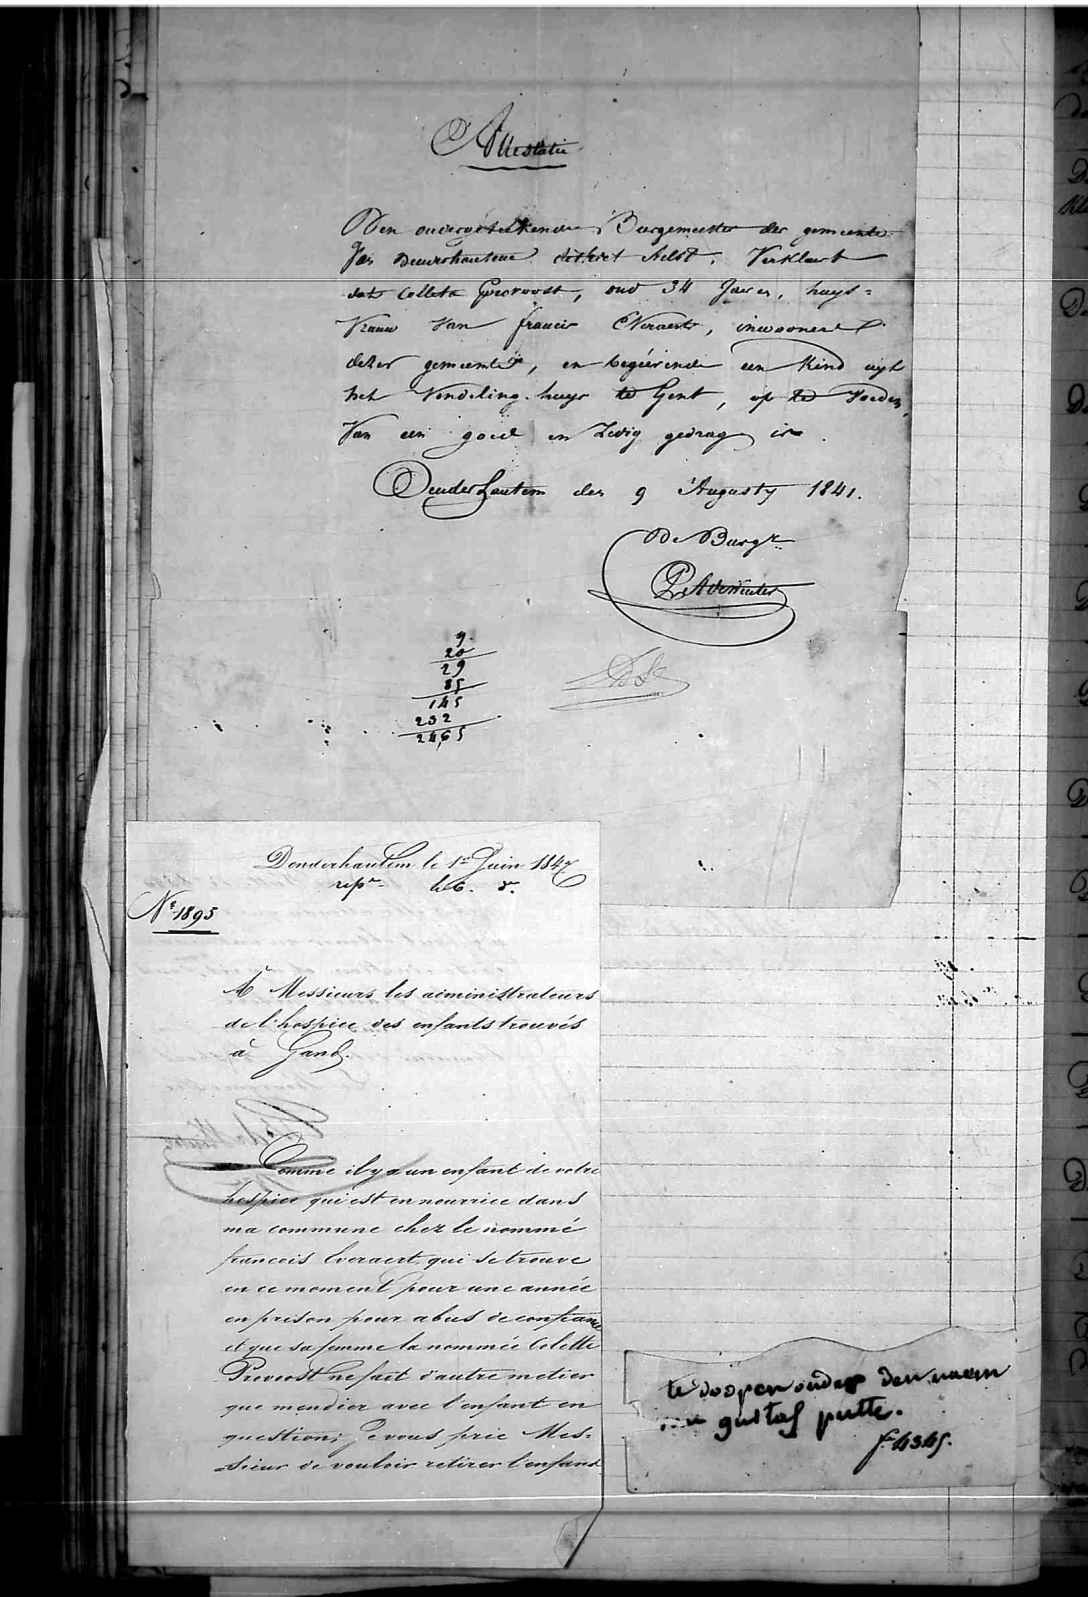 Attestatie
Den ondergeteekende Burgemeester der gemeente
Van Denderhautem district Aelst, Verklaert
dat Colleta Prevoost, oud 34 Jaeren, huys=
Vrauw Van francis Everaert, inwooner
dezer gemeente, en begeerende een Kind uyt
het Vondeling-huys te Gent, op te Voeden,
Van een goed en Zedig gedrag is.
Denderhautem den 9 Augusty 1841.
De Burgr.
9
20
29
85
145
232
24,65
Denderhautem le 1er Juin 1847
repe le 6. do.
No 1895
A Messieurs les administrateurs
de l'hospice des enfants trouvés
à Gand.
Comme il y a un enfant de votre
hospice qui est en nourrice dans
ma commune chez le nommé
francois Everaert, qui se trouve
en ce moment pour une année
en prison pour abus de confiance
et que sa femme la nommée Colette
Prevost ne fait d'autre metier
que mendier avec l'enfant en
question; Je vous prie Mes-
sieur de vouloir retirer l'enfant
te doopen onder den naem
van gustaf putte.
f. 4345.